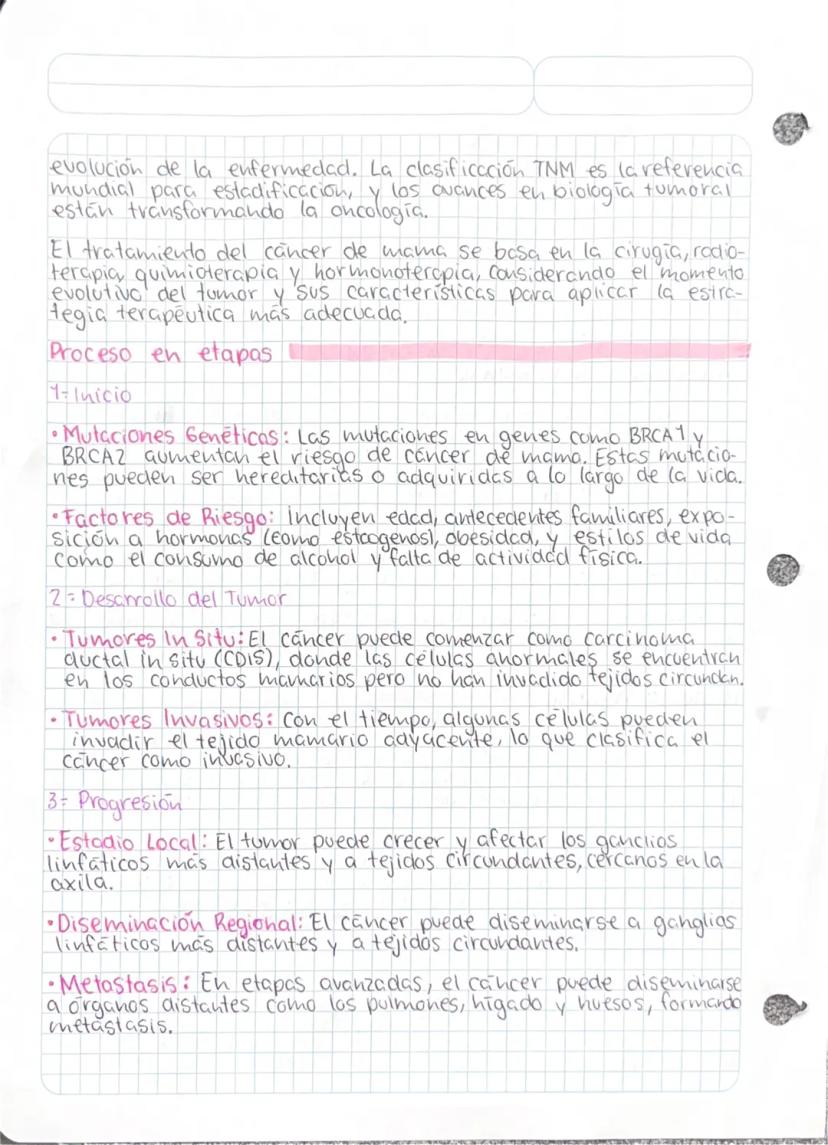 evolución de la enfermedad. La clasificación TNM es la referencia
mundial para estadificación, y los avances en biología tumoral
están transformando la oncología.
El tratamiento del cáncer de mama se basa en la cirugía, radio-
terapia, quimioterapia y hormonoterapia, considerando el momento
evolutivo del tumor y sus características para aplicar la estra-
tegia terapéutica más adecuada.
Proceso en etapas
1= Inicio
• Mutaciones Genéticas: Las mutaciones en genes como BRCA1 y
BRCA2 aumentan el riesgo de cáncer de mama. Estas mutacio-
nes pueden ser hereditarias o adquiridas a lo largo de la vida.
• Factores de Riesgo: Incluyen edad, antecedentes familiares, expo-
sición a hormonas (como estrogenos), obesidad, y estilos de vida
como el consumo de alcohol y falta de actividad física.
2= Desarrollo del Tumor
• Tumores In Situ: El cáncer puede comenzar como carcinoma
ductal in situ (CDIS), donde las células anormales se encuentran
en los conductos mamarios pero no han invadido tejidos circundan.
• Tumores Invasivos: Con el tiempo, algunas células pueden
invadir el tejido mamario adyacente, lo que clasifica el
cáncer como invasivo.
3= Progresión
• Estadio Local: El tumor puede crecer y afectar los ganclios
linfáticos más distantes y a tejidos circundantes, cercanos en la
axila.
• Diseminación Regional: El cáncer puede diseminarse a ganglios
linfáticos más distantes y a tejidos circundantes.
• Metastasis: En etapas avanzadas, el cáncer puede diseminarse
a órganos distantes como los pulmones, hígado y huesos, formando
metástasis.